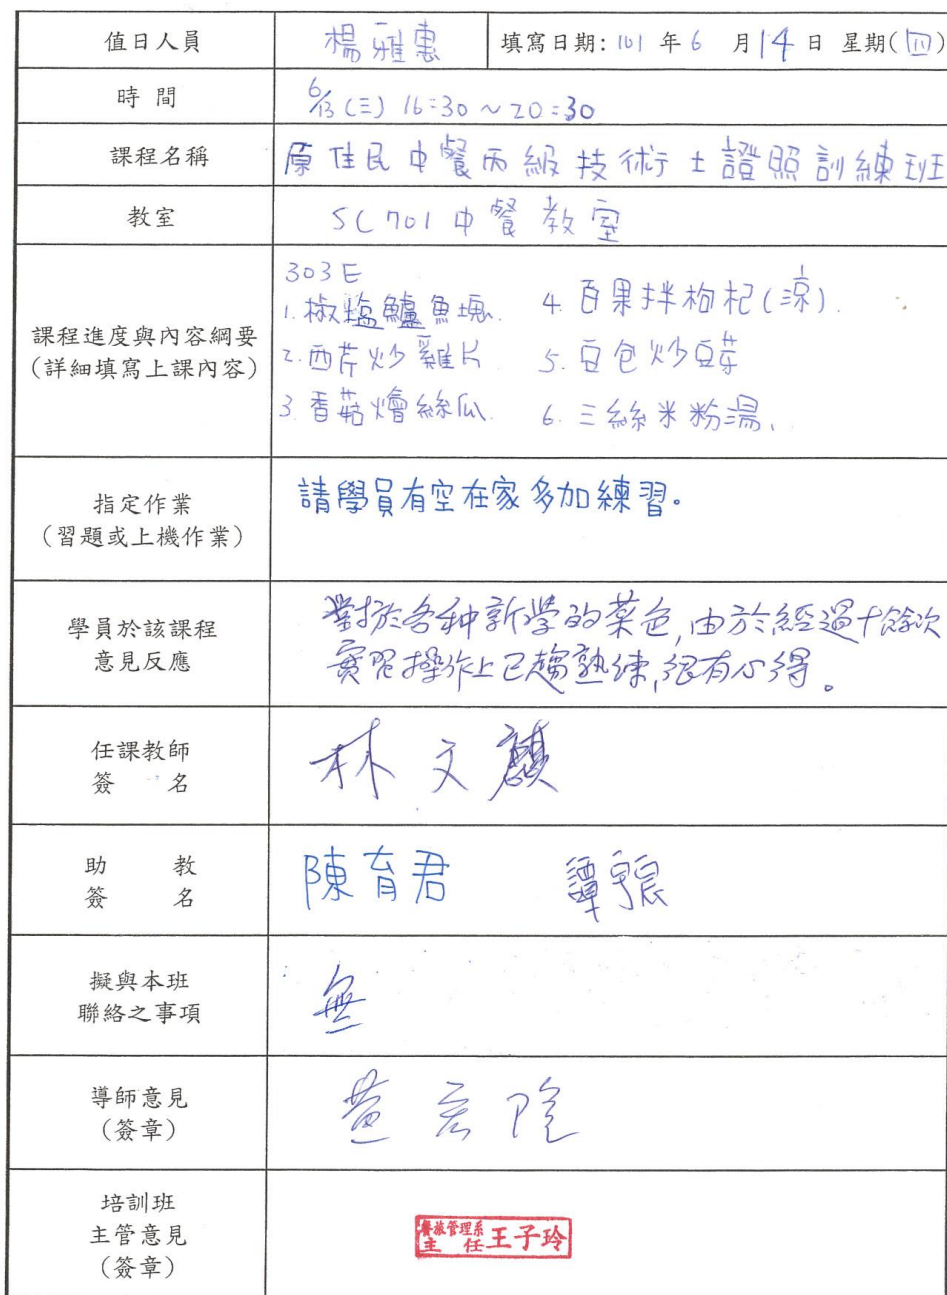 值日人員 楊雅惠 填寫日期: 101 年 6 月 14 日 星期(四)
時 間 6/13 (三) 16:30 ~ 20:30
課程名稱 原住民中餐丙級技術士證照訓練班
教室 SC701中餐教室
課程進度與內容綱要
(詳細填寫上課內容)
303E
1. 椒塩鱸魚塊.
2. 西芹炒雞片
3. 香菇燴絲瓜.
4. 百果拌枸杞(涼).
5. 豆包炒豆芽
6. 三絲米粉湯.
指定作業
(習題或上機作業)
請學員有空在家多加練習。
學員於該課程
意見反應
對於各种新學的菜色,由於經過十餘次
實習操作上已趨熟练,很有心得。
任課教師
簽 名
林文
助 教
簽 名
陳育君 譚
擬與本班
聯絡之事項
無
導師意見
(簽章)
黃宏隆
培訓班
主管意見
(簽章)
餐旅管理系
主 任 王子玲